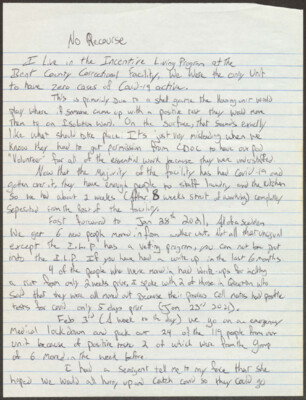 No Recourse
I Live in the Incentive Living Program at the
Bent County Correctional facility. We were the only Unit
to have zero cases of Covid-19 active.
This is primarily due to a shell game the Housing unit would
play where if someone came up with a positive test they would move
them to an Isolation Ward. On the surface, that sounds exactly
like what should take place. It's just very misleading when we
know they had to get permission from CDOC to have our pod
"Volunteer" for all of the essential work because they were uninfected
Now that the majority of the facility has had Covid-19 and
gotten over it, they have enough people to staff laundry and the kitchen
So we had about 2 weeks (After 8 weeks straight working) completely
seperated from the Rest of the facility.
Fast forward to Jan 28th 2021,
We get 6 new people moved in from another unit. Not all that unusual
except the I.L.P. has a vetting program, you can not be put
into the I.L.P. If you have had a write-up in the last 6 months.
4 of the people who were moved in had write-ups for inciting
a riot from only 2 weeks prior, I spoke with 2 of those in Question who
said that they were all moved out because their previous cell mates had positive
tests for covid only 5 days prior (Jan 23rd 2021).
Feb 3rd (1 week to the day) we go on an emergency
Medical lockdown and pack out 24 of the 119 people from our
unit because of positive tests 2 of which were from the Group
of 6 moved in the week before
I had a Sergeant tell me to my face that she
hoped we would all hurry up and catch covid so they could go